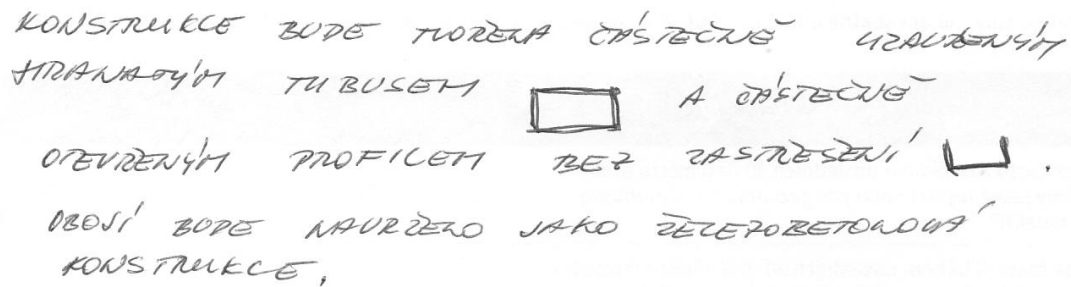 KONSTRUKCE BUDE TVOŘENA ČÁSTEČNĚ UZAVŘENÝM
HRANATÝM TUBUSEM A ČÁSTEČNĚ
OTEVŘENÝM PROFILEM BEZ ZASTŘEŠENÍ .
OBOJÍ BUDE NAVRŽENO JAKO ŽELEZOBETONOVÁ
KONSTRUKCE.